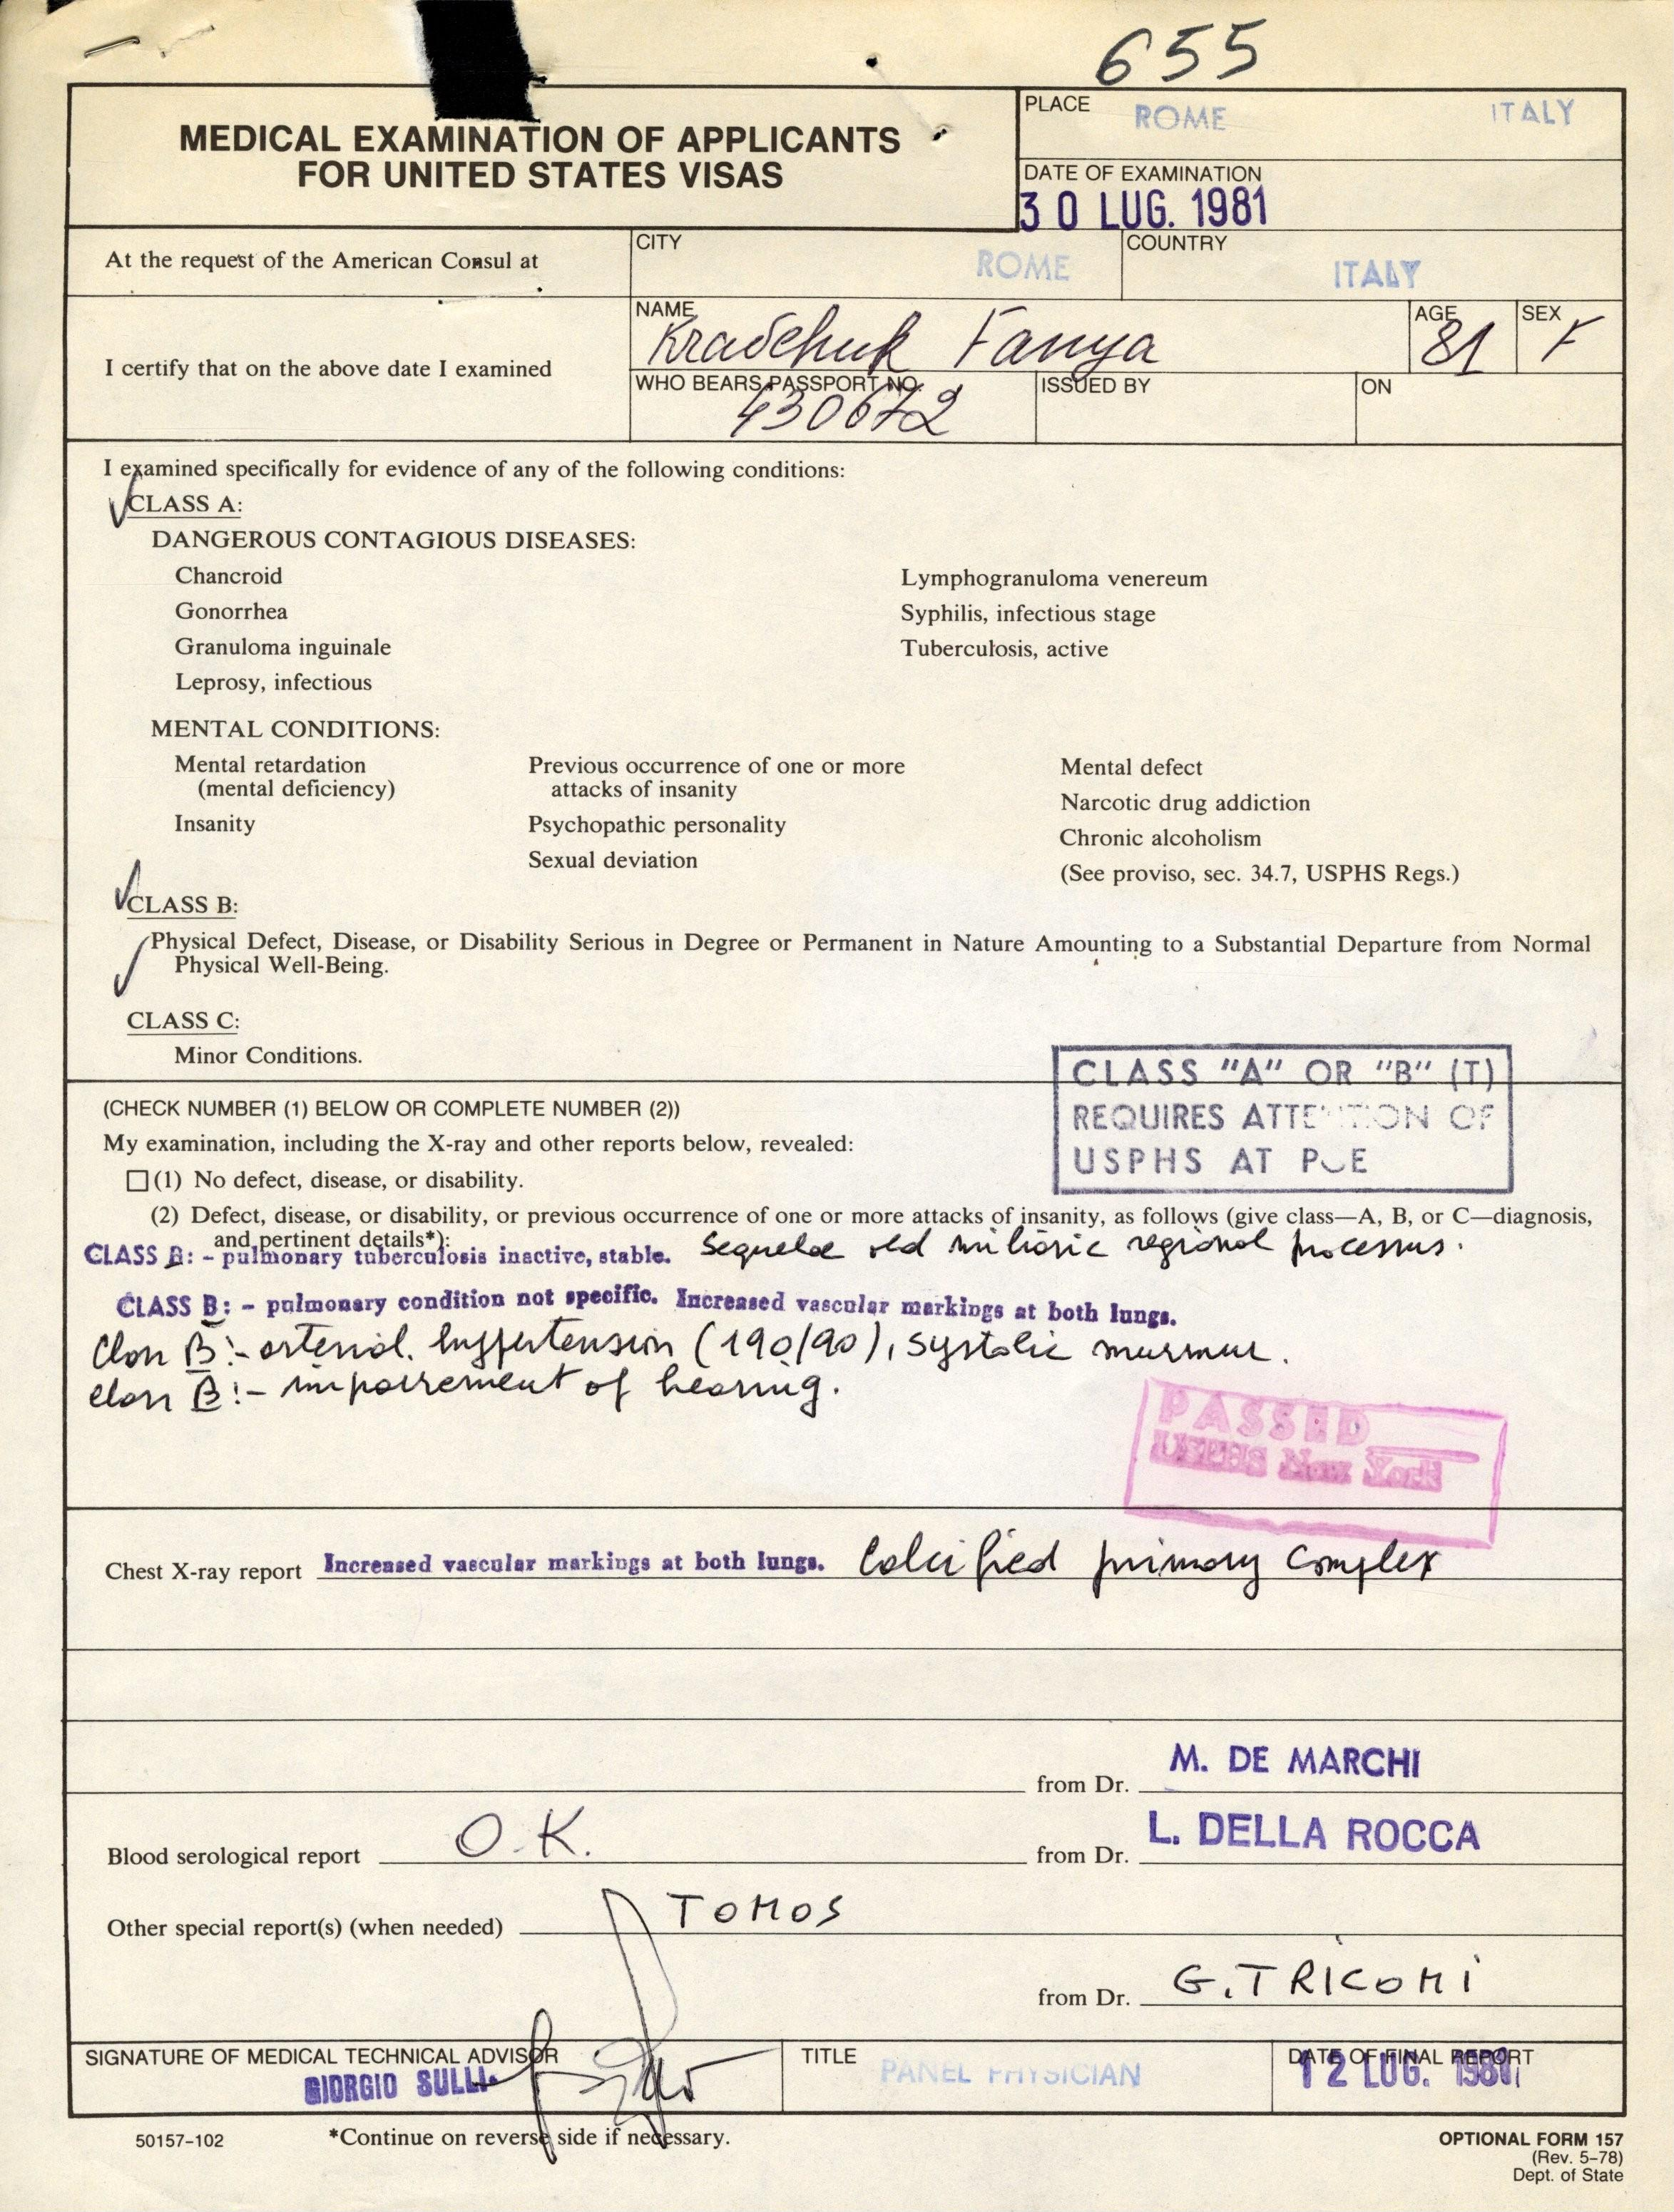 655
MEDICAL EXAMINATION OF APPLICANTS
FOR UNITED STATES VISAS
PLACE ROME ITALY
DATE OF EXAMINATION
30 LUG. 1981
At the request of the American Consul at
CITY ROME
COUNTRY ITALY
I certify that on the above date I examined
NAME
Kravchuk Fanya
AGE
81
SEX
F
WHO BEARS PASSPORT NO.
430672
ISSUED BY
ON
I examined specifically for evidence of any of the following conditions:
CLASS A:
DANGEROUS CONTAGIOUS DISEASES:
Chancroid Lymphogranuloma venereum
Gonorrhea Syphilis, infectious stage
Granuloma inguinale Tuberculosis, active
Leprosy, infectious
MENTAL CONDITIONS:
Mental retardation
(mental deficiency)
Insanity
Previous occurrence of one or more
attacks of insanity
Psychopathic personality
Sexual deviation
Mental defect
Narcotic drug addiction
Chronic alcoholism
(See proviso, sec. 34.7, USPHS Regs.)
CLASS B:
Physical Defect, Disease, or Disability Serious in Degree or Permanent in Nature Amounting to a Substantial Departure from Normal
Physical Well-Being.
CLASS C:
Minor Conditions.
CLASS "A" OR "B" (T)
REQUIRES ATTENTION OF
USPHS AT POE
(CHECK NUMBER (1) BELOW OR COMPLETE NUMBER (2))
My examination, including the X-ray and other reports below, revealed:
(1) No defect, disease, or disability.
(2) Defect, disease, or disability, or previous occurrence of one or more attacks of insanity, as follows (give class—A, B, or C—diagnosis,
and pertinent details*):
CLASS B: - pulmonary tuberculosis inactive, stable. Sequelae old regional processus.
CLASS B: - pulmonary condition not specific. Increased vascular markings at both lungs.
Class B:- arterial. hyppertension (190/90), systolic murmur.
Class B:- impairement of hearing.
PASSED
USPHS New York
Chest X-ray report Increased vascular markings at both lungs. Calcified primary complex
from Dr. M. DE MARCHI
Blood serological report O.K. from Dr. L. DELLA ROCCA
Other special report(s) (when needed) TOMOS
from Dr. G. TRICOMI
SIGNATURE OF MEDICAL TECHNICAL ADVISOR
GIORGIO SULLI
TITLE PANEL PHYSICIAN
DATE OF FINAL REPORT
12 LUG. 1981
50157-102
*Continue on reverse side if necessary.
OPTIONAL FORM 157
(Rev. 5-78)
Dept. of State